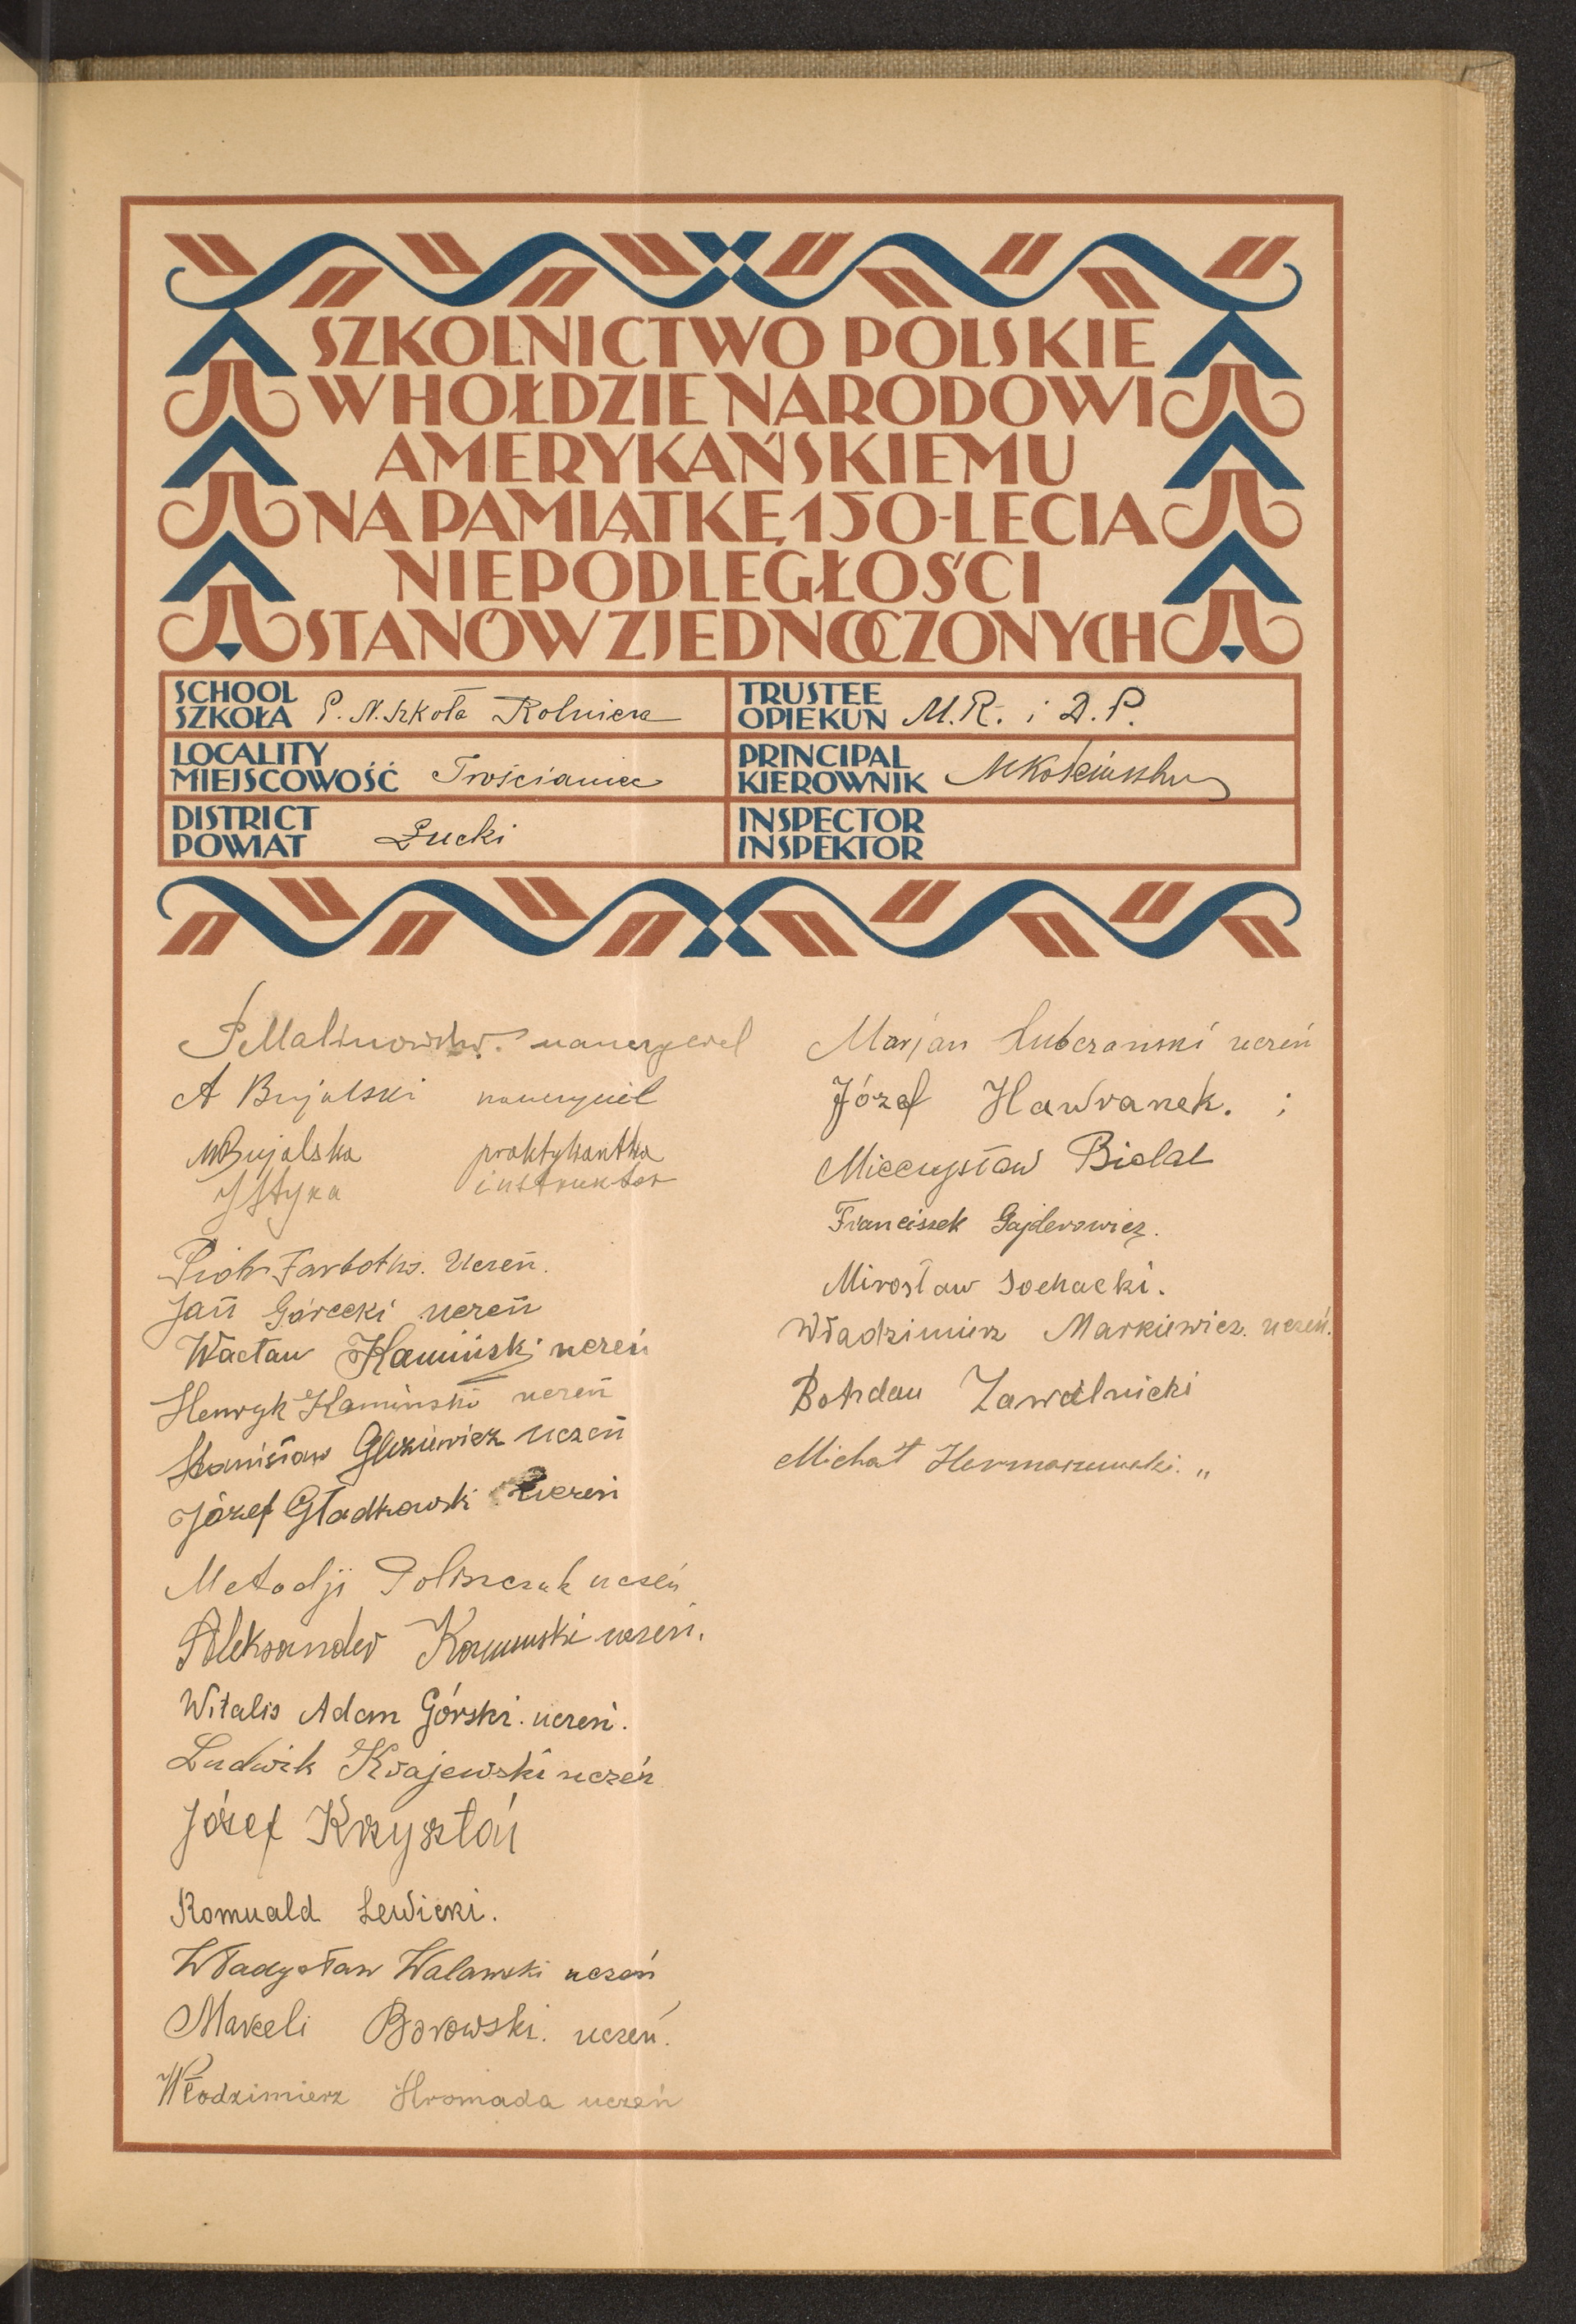 SZKOLNICTWO POLSKIE
W HOŁDZIE NARODOWI
AMERYKAŃSKIEMU
NA PAMIĄTKĘ 150-LECIA
NIEPODLEGŁOŚCI
STANÓW ZJEDNOCZONYCH
SCHOOL
SZKOŁA P. N. Szkoła Rolnicza
TRUSTEE
OPIEKUN M. R. i D. P.
LOCALITY
MIEJSCOWOŚĆ Trościaniec
PRINCIPAL
KIEROWNIK MKościuszko
DISTRICT
POWIAT Łucki
INSPECTOR
INSPEKTOR
nauczyciel
A Bujalski nauczyciel
MBujalska praktykantka
JStyka instruktor
Piotr Uczeń.
Jań Górecki uczeń
Wacław Kamiński uczeń
Henryk Kamiński uczeń
Stanisław uczeń
Józef Gładkowski Uczeń
Metodji Poliszczuk uczeń
Aleksander Kamiński uczeń.
Witalis Adam Górski. uczeń.
Ludwik Krajewski uczeń
Józef Krzysztoń
Romuald Lewicki.
Władysław Walawski uczeń
Marceli Borowski. uczeń.
Włodzimierz Hromada uczeń
Marjan uczeń
Józef Hawranek. ;
Mieczysław Bielak
Franciszek Gajderowicz.
Mirosław Sochacki.
Władzimierz Markiewicz. uczeń.
Bohdan Zawalnicki
Michał "